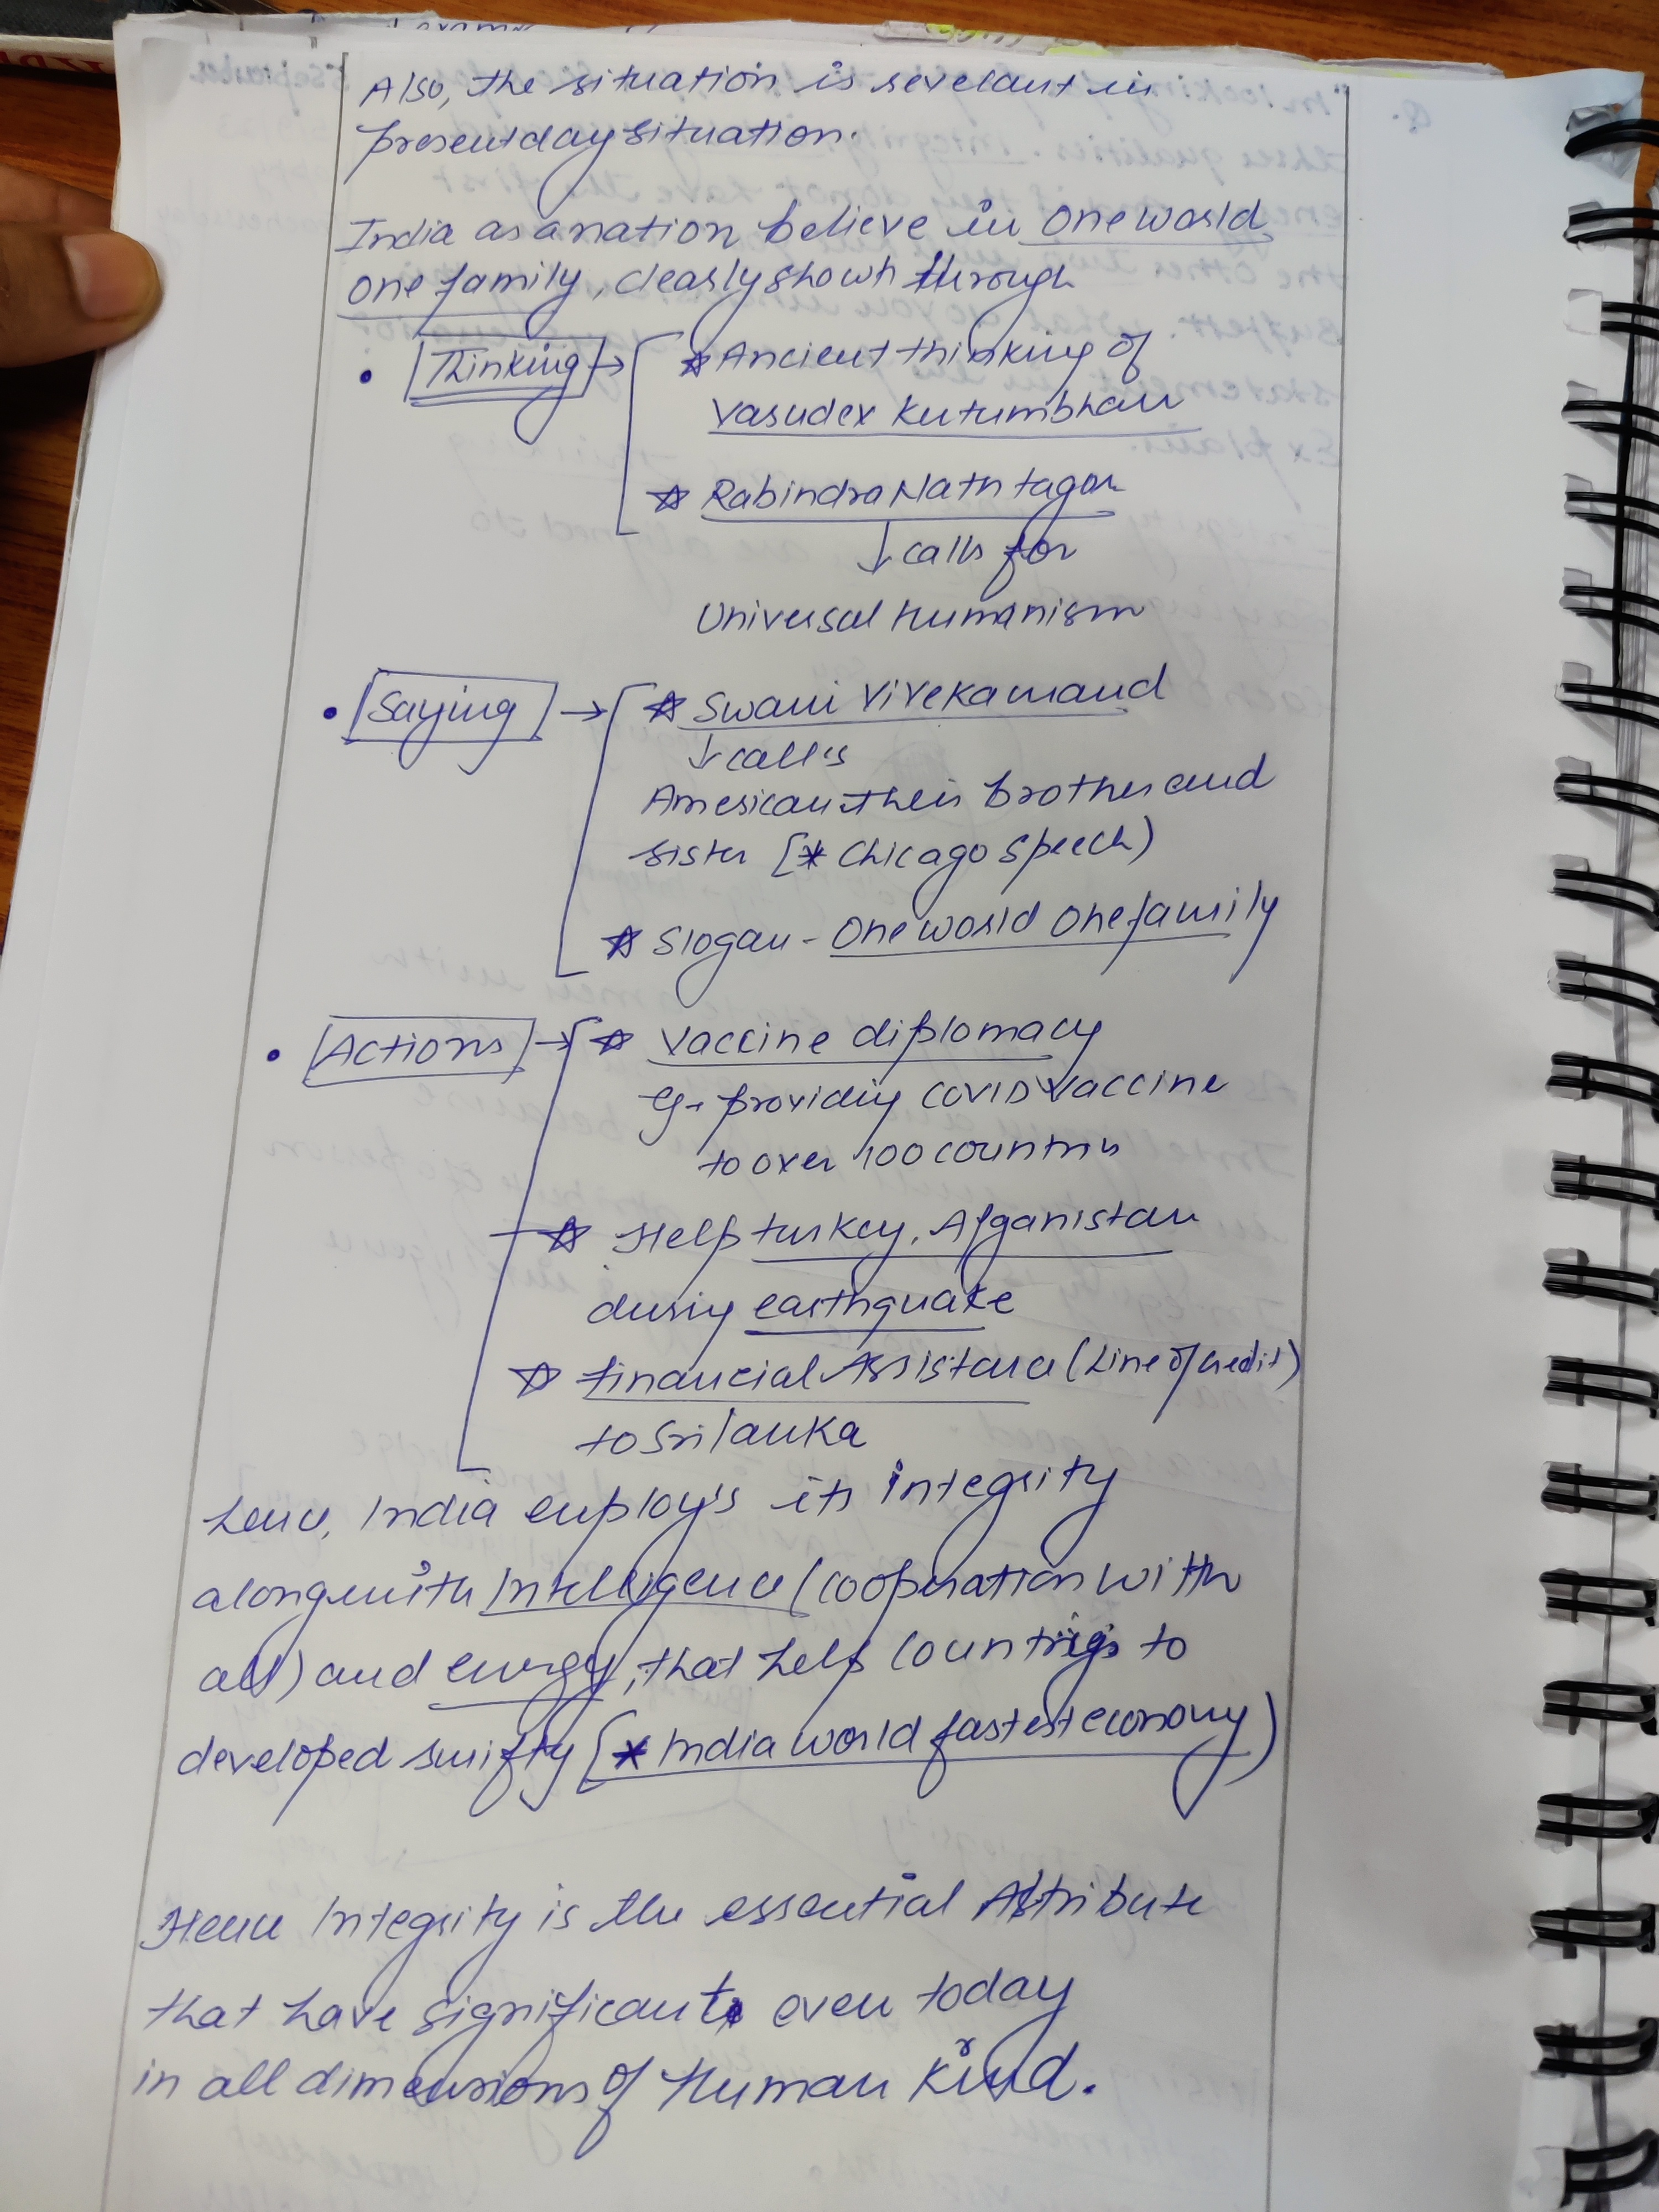 Also, the situation is revelant in
present day situation.
India as a nation believe in One world
One family, clearly shown through
• Thinking → ☆ Ancient thinking of
Vasudev Kutumbhan
☆ Rabindra Nath tagore
↓ calls for
Universal Humanism
• Saying → ☆ Swami Vivekanand
↓ calls
American their brother and
sister [* Chicago speech)
☆ Slogan - One world One family
• Actions → ☆ Vaccine diplomacy
Eg - providing COVID vaccine
to over 100 countries
☆ Help turkey, Afganistan
during earthquake
☆ financial Assistance (Line of credit)
to Sri lanka
hence, India employ's its integrity
alongwith Intelligence (cooperation with
all) and energy, that help countries to
developed swifty [* India world fastest economy)
Hence Integrity is the essential Attribute
that have significant even today
in all dimensions of Human Kind.